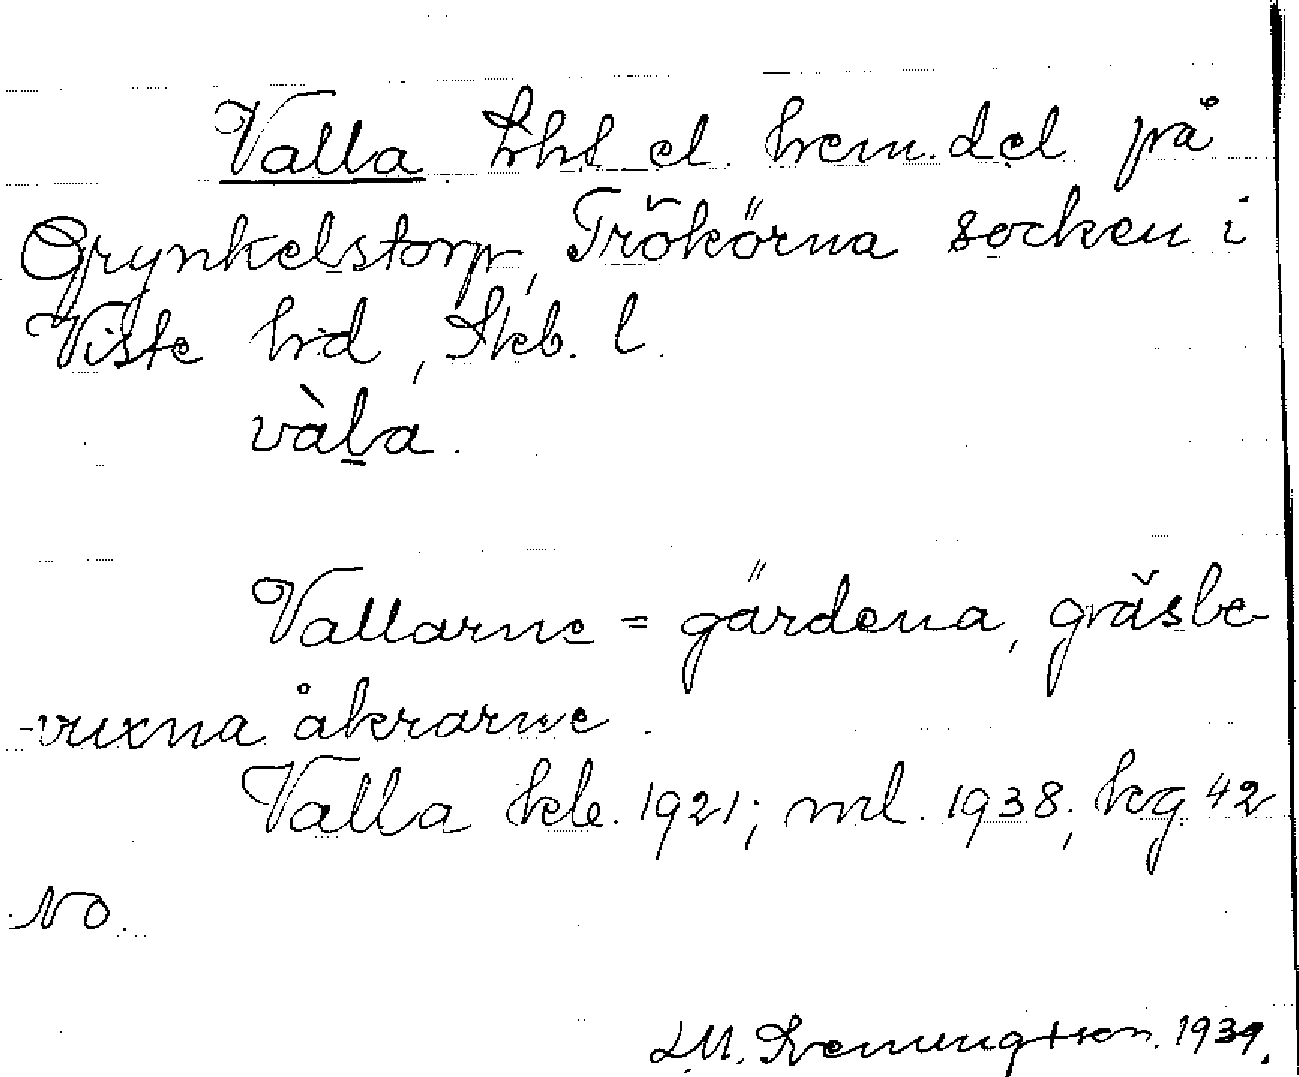 Valla lht el. hem.del på
Grynkelstorp, Trökörna socken i
Viste hd, Skb. l.
vàḻa.
Vallarne = gärdena, gräsbe-
-vuxna åkrarne.
Valla kb. 1921; ml. 1938; kg 42
NO.
L.M. Svenungsson. 1939.